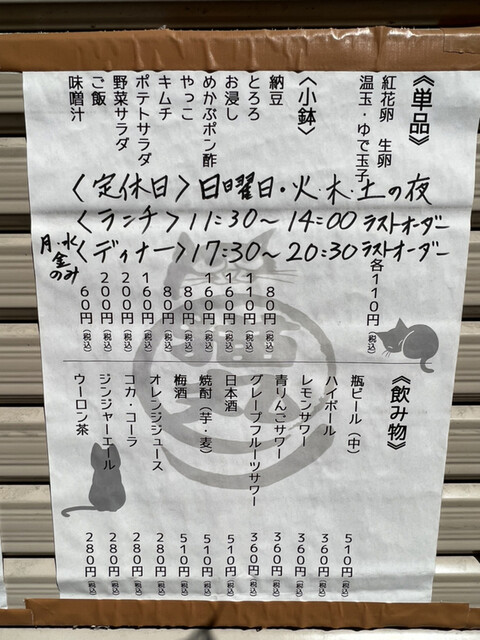 《単品》
紅花卵 生卵
温玉・ゆで玉子 各110円(税込)
〈小鉢〉
納豆 80円(税込)
とろろ 110円(税込)
お浸し 160円(税込)
めかぶポン酢 160円(税込)
やっこ 80円(税込)
キムチ 80円(税込)
ポテトサラダ 160円(税込)
野菜サラダ 200円(税込)
ご飯 200円(税込)
味噌汁 60円(税込)
〈定休日〉日曜日・火・木・土の夜
〈ランチ〉11:30〜14:00 ラストオーダー
月・水金のみ〈ディナー〉17:30〜20:30 ラストオーダー
《飲み物》
瓶ビール（中） 510円(税込)
ハイボール 360円(税込)
レモンサワー 360円(税込)
青りんごサワー 360円(税込)
グレープフルーツサワー 360円(税込)
日本酒 510円(税込)
焼酎（芋・麦） 510円(税込)
梅酒 510円(税込)
オレンジジュース 280円(税込)
コカ・コーラ 280円(税込)
ジンジャーエール 280円(税込)
ウーロン茶 280円(税込)